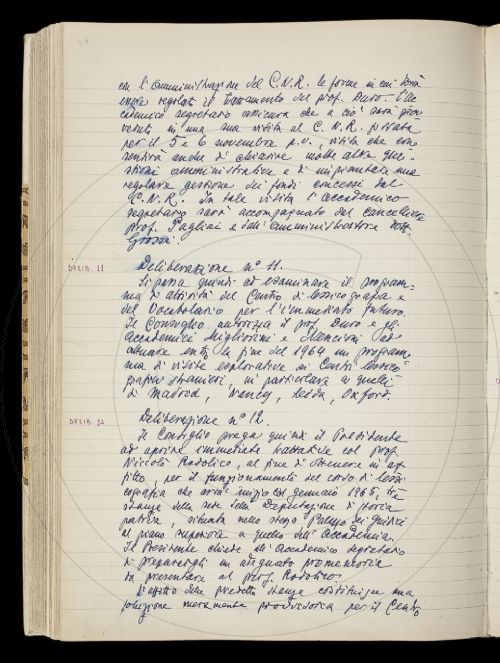 con l'amministrazione del C.N.R. le forme in cui dovrà
essere regolato il trattamento del prof. Duro. L'Ac-
cademico segretario assicura che a ciò sarà prov-
veduto in una sua visita al C.N.R. fissata
per il 5 e 6 novembre p.v., visita che con-
sentirà anche di chiarire molte altre que-
stioni amministrative e di impiantare una
regolare gestione dei fondi concessi dal
C.N.R. In tale visita l'Accademico
segretario sarà accompagnato dal cancelliere
prof. Pagliai e dall'amministratore dott.
Grossi.
DELIB. 11
Deliberazione n° 11.
Si passa quindi ad esaminare il program-
ma di attività del Centro di lessicografia e
del Vocabolario per l'immediato futuro.
Il Consiglio autorizza il prof. Duro e gli
Accademici Migliorini e Nencioni ad
attuare entro la fine del 1964 un program-
ma di visite esplorative ai Centri lessico-
grafici stranieri, in particolare a quelli
di Madrid, Nancy, Leida, Oxford.
DELIB. 12
Deliberazione n° 12.
Il Consiglio prega quindi il Presidente
ad aprire immediate trattative col prof.
Niccolò Rodolico, al fine di ottenere in af-
fitto, per il funzionamento del corso di lessi-
cografia che avrà inizio col gennaio 1965, tre
stanze della sede della Deputazione di storia
patria, situata nello stesso Palazzo dei Giudici
al piano superiore a quello dell'Accademia.
Il Presidente chiede all'Accademico segretario
di preparargli un adeguato promemoria
da presentare al prof. Rodolico.
L'affitto delle predette stanze costituisce una
soluzione meramente provvisoria per il Centro